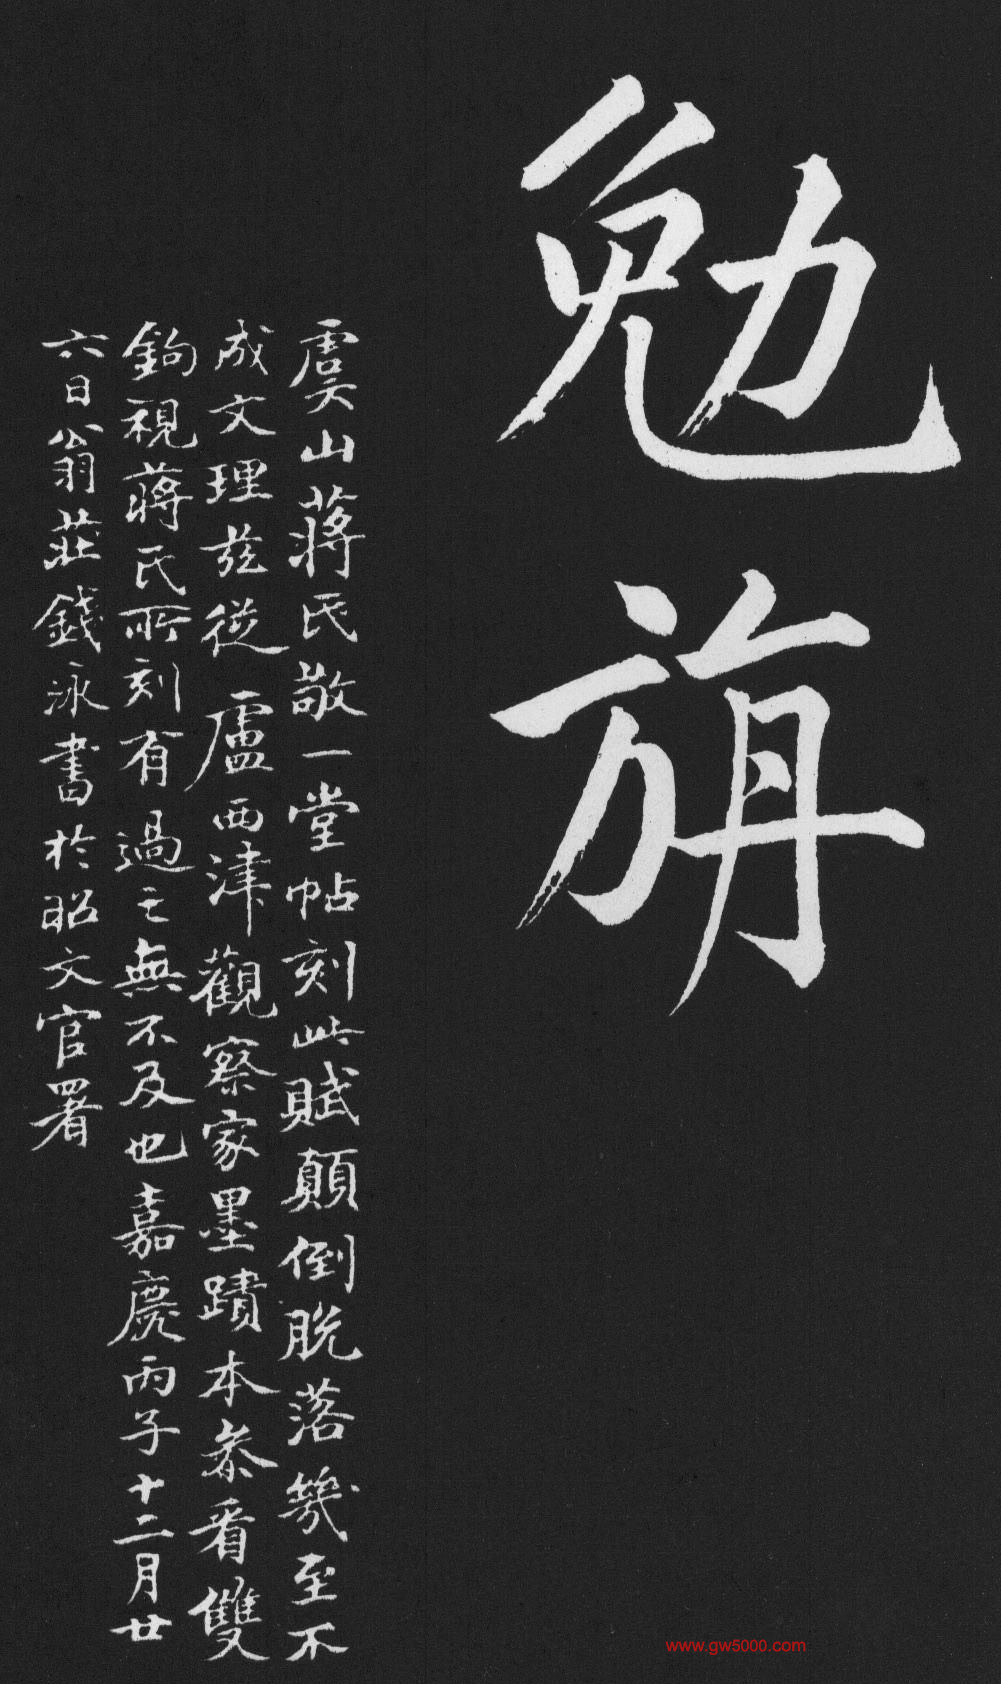 勉旃
虞山蔣氏敬一堂帖刻此賦顛倒脫落幾至不
成文理茲從盧西津觀察家墨蹟本叅看雙
鉤視蔣氏所刻有過之無不及也嘉慶丙子十二月廿
六日翁莊錢泳書於昭文官署
www.gw5000.com